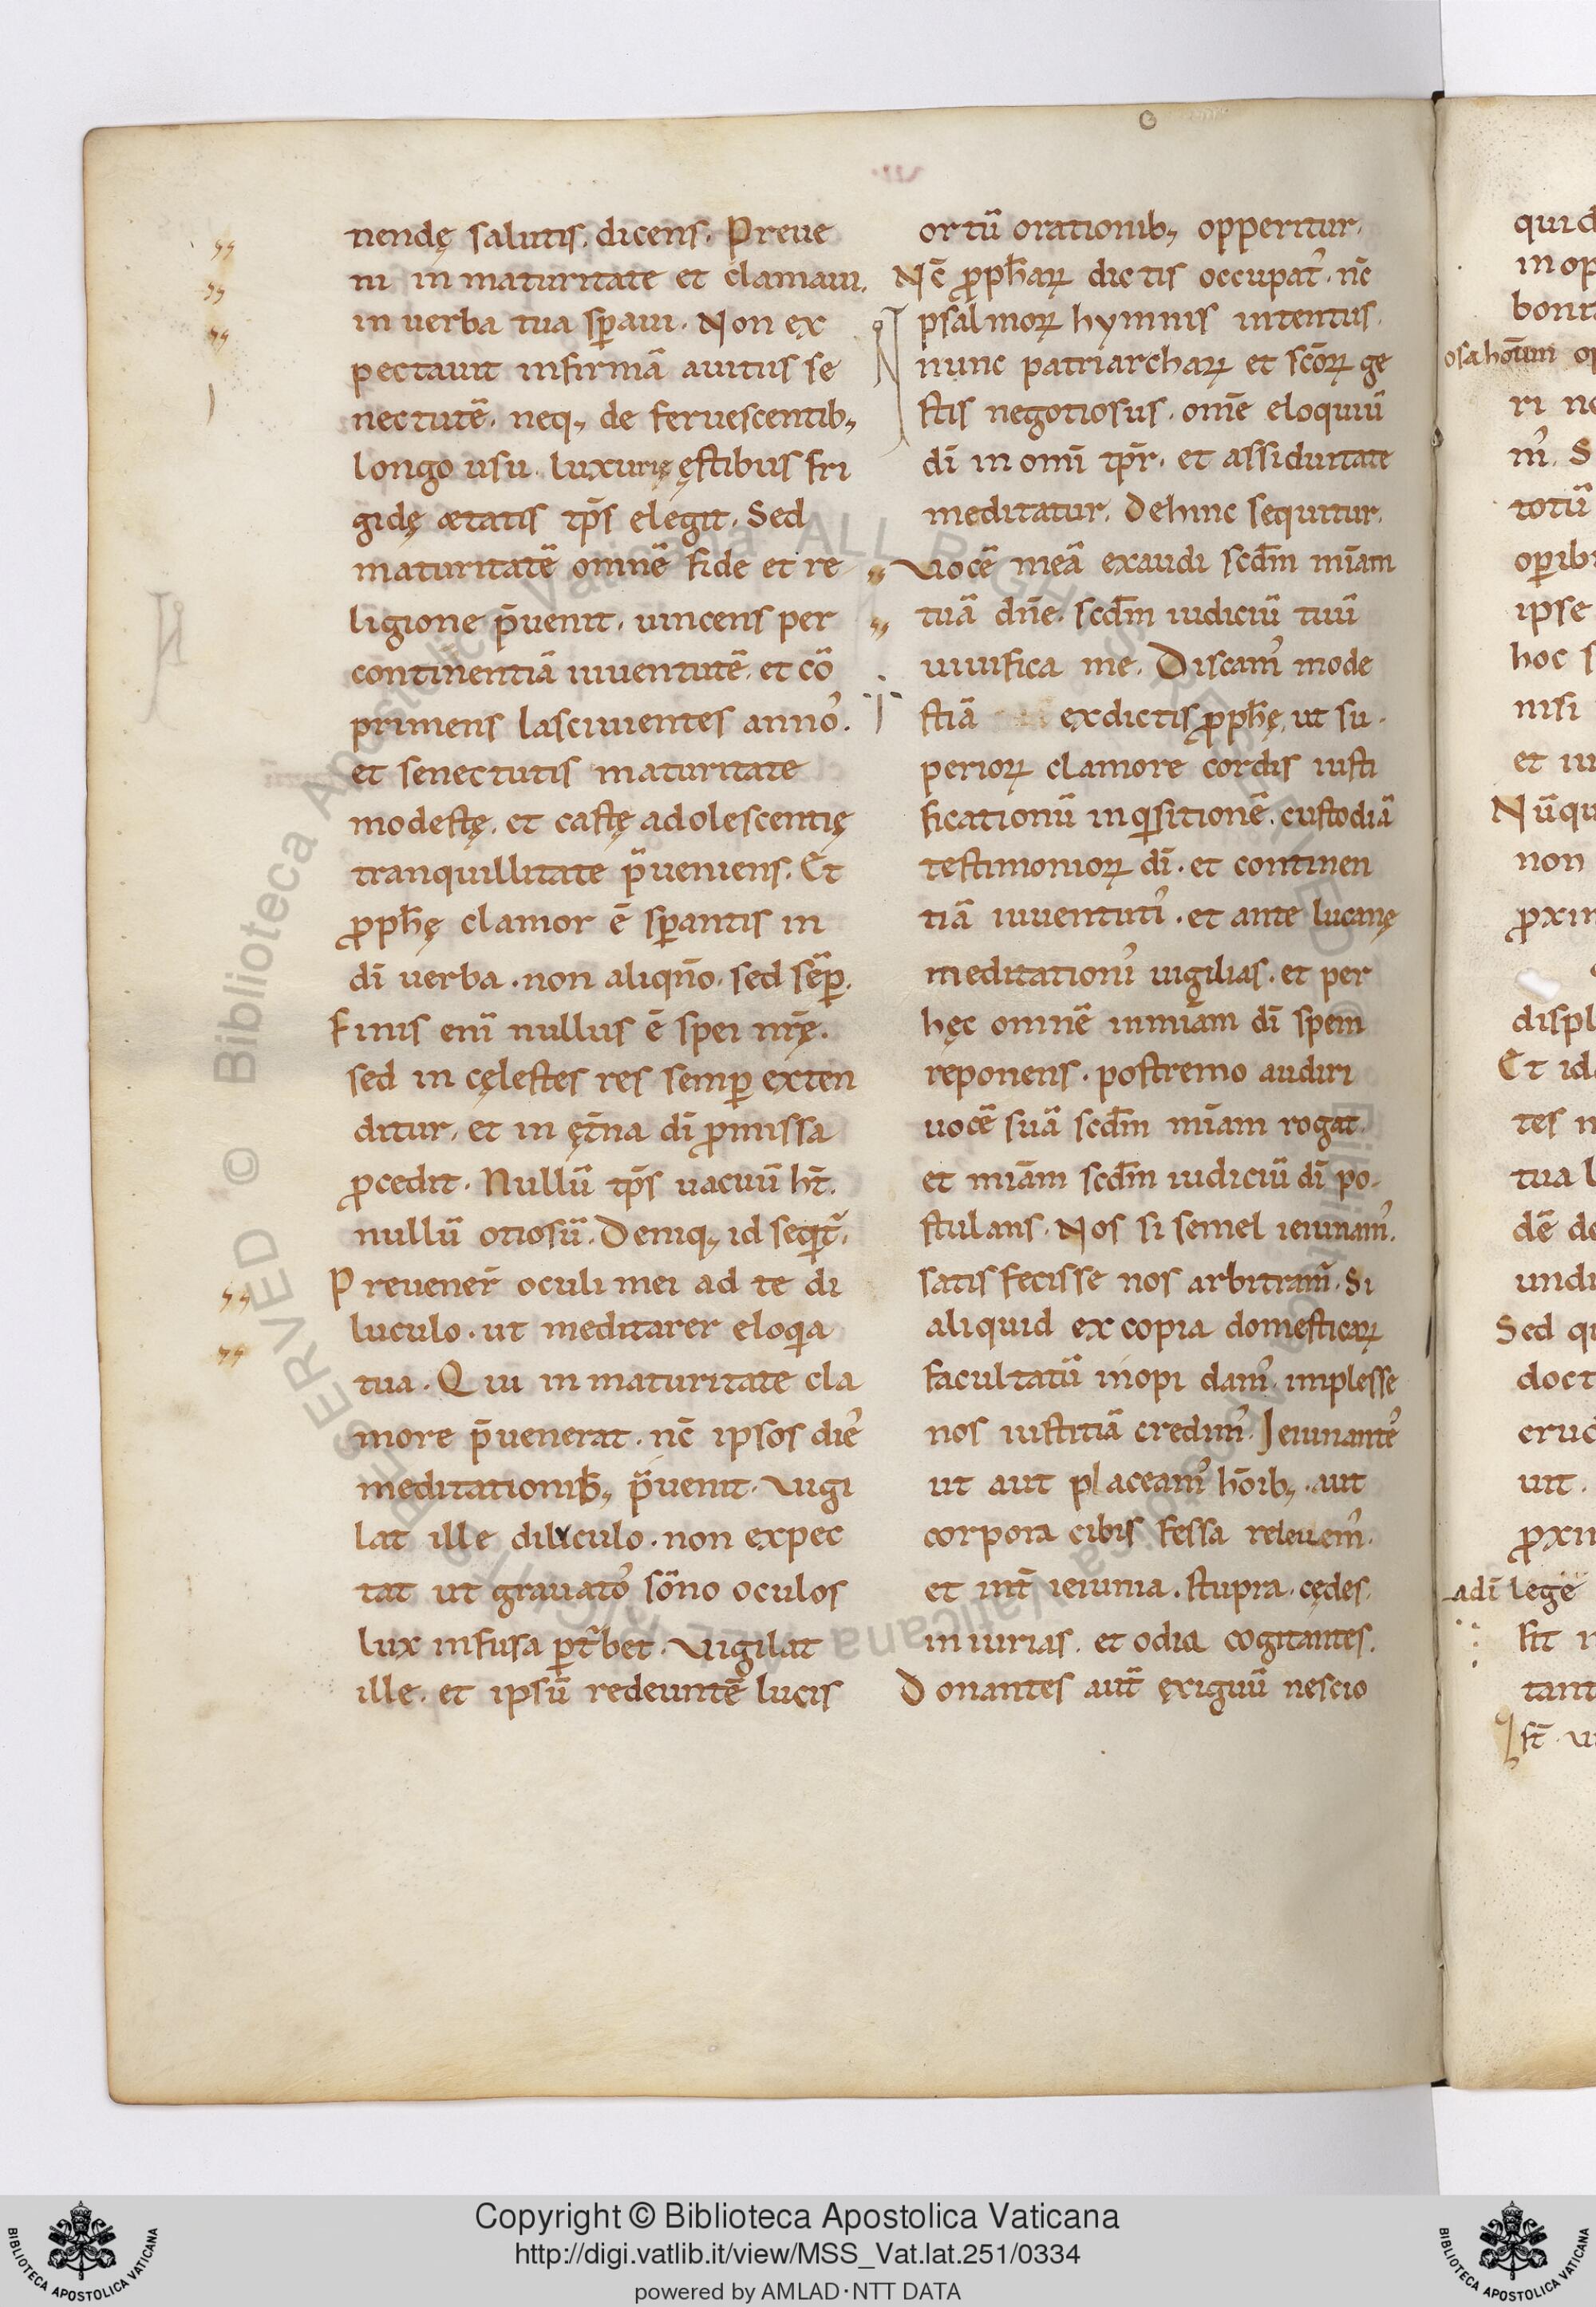 nendę salutis. dicens. Preue
ni in maturitate et clamaui.
in uerba tua sp̄aui. Non ex
pectauit infirmā auitus se
nectutē. neq; de feruescentib;
longo usu luxurię ęstibus fri
gidę ætatis tp̄s elegit. Sed
maturitatē omnē fide et re
ligione p̄uenit. uincens per
continentiā iuuentutē. et cō
primens lasciuientes anno᾽.
et senectutis maturitate
modestę. et castę adolescentię
tranquillitate p̄ueniens. Et
ꝓph̄ę clamor ē sꝑantis in
dī uerba. non aliqn̄o. sed sēꝑ.
Finis eni᷑ nullus ē spei nr̄ę.
sed in cęlestes res semꝑ exten
ditur, et in ęt̄na dī ꝓmissa
ꝓcedit. Nullū tp̄s uacuū ht̄.
nullū otiosū. Deniq; id seqit᷑.
Preuener̄ oculi mei ad te di
luculo. ut meditarer eloqia
tua. Qui in maturitate cla
more p̄uenerat. nc̄ ipsos die᾽
meditationib; p̄uenit. Uigi
lat ille diluculo. non expec
tat ut grauato᾽ sōno oculos
lux infusa ꝑt᷑bet. Uigilat
ille. et ipsū redeuntē lucis
ortū orationib; opperitur.
Nc̄ ꝓph̄aꝝ dictis occupat᾽. nc̄
psalmoꝝ hymnis intentus.
nunc patriarchaꝝ et scōꝝ ge
stis negotiosus. om̄e eloquiū
dī in omī tp̄r. et assiduitate
meditatur. Dehinc sequitur.
Uocē meā exaudi scd̄m mīam
tuā dn̄e. scd̄m iudiciū tuū
uiuifica me. Discam᾽ mode
stiā ex dictis ꝓph̄ę, ut su
perioꝝ clamore cordis iusti
ficationū inqisitionē. custodiā
testimonioꝝ dī. et continen
tiā iuuentuti᾽. et ante lucanę
meditationi᾽ uigilias. et per
hęc omnē in mīam dī spem
reponens. postremo audiri
uocē suā scd̄m mīam rogat
et mīam scd̄m iudiciū dī po
stulans. Nos si semel ieiunam᾽.
satisfecisse nos arbitram̄. Si
aliquid ex copia domesticaꝝ
facultatū inopi dam᾽. implesse
nos iustitiā credim᾽. Ieiunante᾽
ut aut placeam᾽ hōib;. aut
corpora cibis fessa releuem᾽.
et int̄ ieiunia. stupra. cędes.
iniurias. et odia cogitantes.
Donantes aut̄ exiguū nescio
quid
in op
bonit
osa hoīum op
ri ne
totū
operib
ipse
hoc s
nisi
et iu
Nūqu
non
ꝓxim
displ
Et id
tes n
tua l
dē de
undi
Sed qu
doct
eruc
uit.
ꝓxi
adī legē
fit
tant
Copyright © Biblioteca Apostolica Vaticana
http://digi.vatlib.it/view/MSS_Vat.lat.251/0334
powered by AMLAD·NTT DATA
BIBLIOTECA APOSTOLICA VATICANA
BIBLIOTECA APOSTOLICA VATICANA